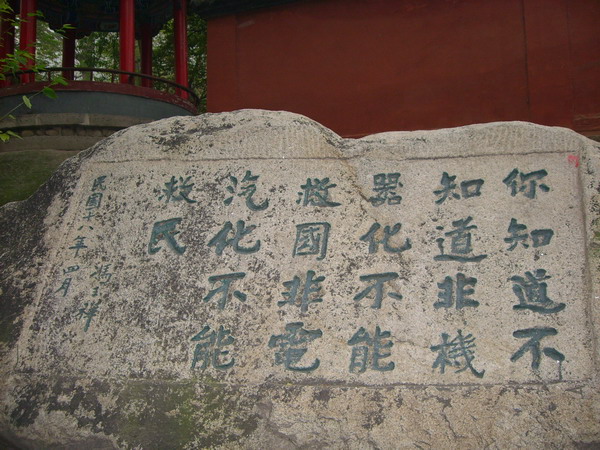 你知道不
知道非機
器化不能
救國非電
汽化不能
救民
民國十八年四月
馮祥